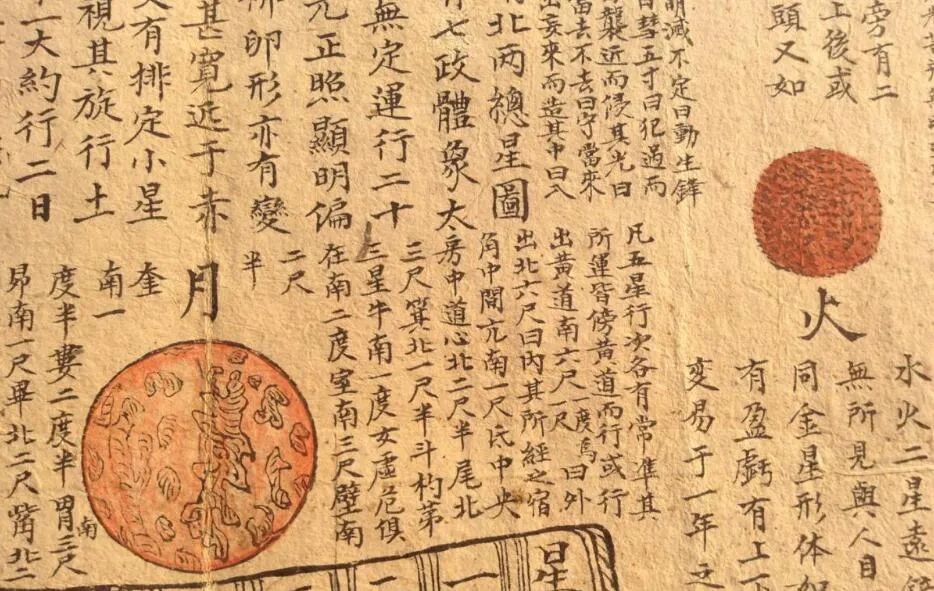 旁有二
上後或
頭又如
火
水火二星遠
無所見與人目
同金星形体如
有盈虧有上下
變易于一年之
萌滅不定曰動生鋒
彗五寸曰犯過而
襲近而侵其光曰
當去不去曰守當來
出妄來而造其中曰入
北两總星圖
凡五星行次各有常准其
所運皆傍黃道而行或行
出黃道南六尺一度爲曰外
出北六尺曰内其所經之宿
角中間亢南一尺氐中央
房中道心北二尺半尾北
三尺箕北一尺半斗杓第
三星牛南一度女虛危俱
在南二度室南三尺壁南
二尺
半
有七政體象太
無定運行二十
元正照顯明偏
卵形亦有變
甚寬远于赤
月
又有排定小星
視其旋行土
一大約行二日
奎
南一
度半婁二度半胃南三尺
昴南一尺畢北二尺觜北二
星
一
一